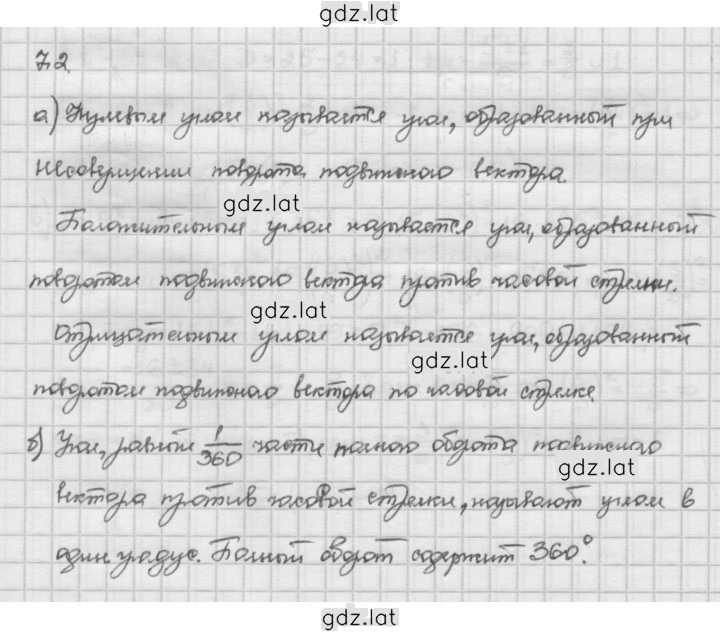 gdz.lat
7.2.
а) Нулевым углом называется угол, образованный при
несовершении поворота подвижного вектора.
gdz.lat
Положительным углом называется угол, образованный
поворотом подвижного вектора против часовой стрелки.
gdz.lat
Отрицательным углом называется угол, образованный
gdz.lat
поворотом подвижного вектора по часовой стрелке.
б) Угол, равный 1/360 части полного оборота подвижного
gdz.lat
вектора против часовой стрелки, называют углом в
один градус. Полный оборот содержит 360°.
gdz.lat